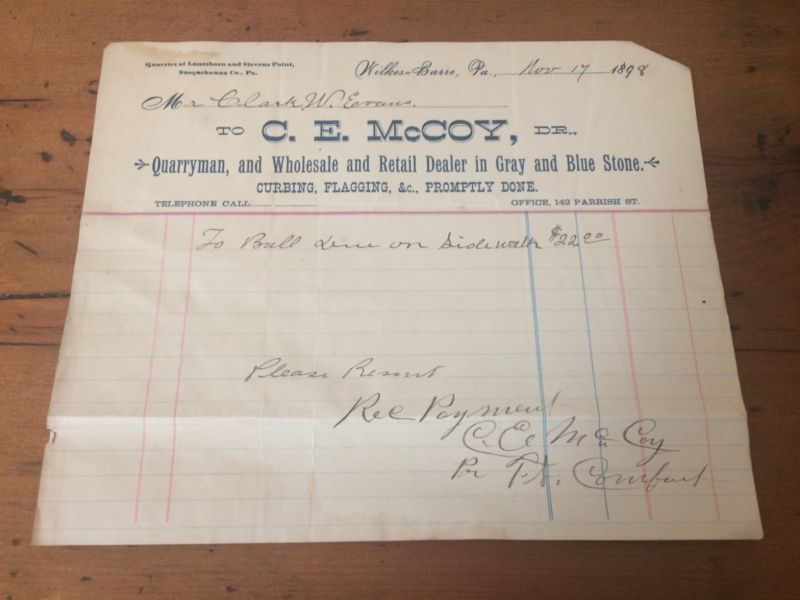 Quarries at Lanesboro and Stevens Point,
Susquehanna Co., Pa.
Wilkes-Barre, Pa., Nov 17 1898
Mr Clark W. Evans.
TO C. E. McCOY, DR.,
Quarryman, and Wholesale and Retail Dealer in Gray and Blue Stone.
CURBING, FLAGGING, &c., PROMPTLY DONE.
TELEPHONE CALL................
OFFICE, 142 PARRISH ST.
To Ball Due on Sidewalk $22.00
Please Remit
Rec Payment
C. E. McCoy
Pr T.